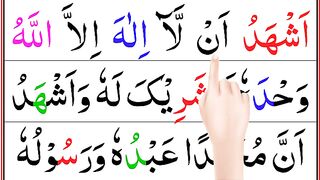 اَشْهَدُ اَنْ لَّآ اِلٰهَ اِلاَّ اللّٰهُ
شَرِیْکَ لَهٗ وَاَشْهَدُ
اَنَّ عَبْدُهٗ وَرَسُوْلُهٗ